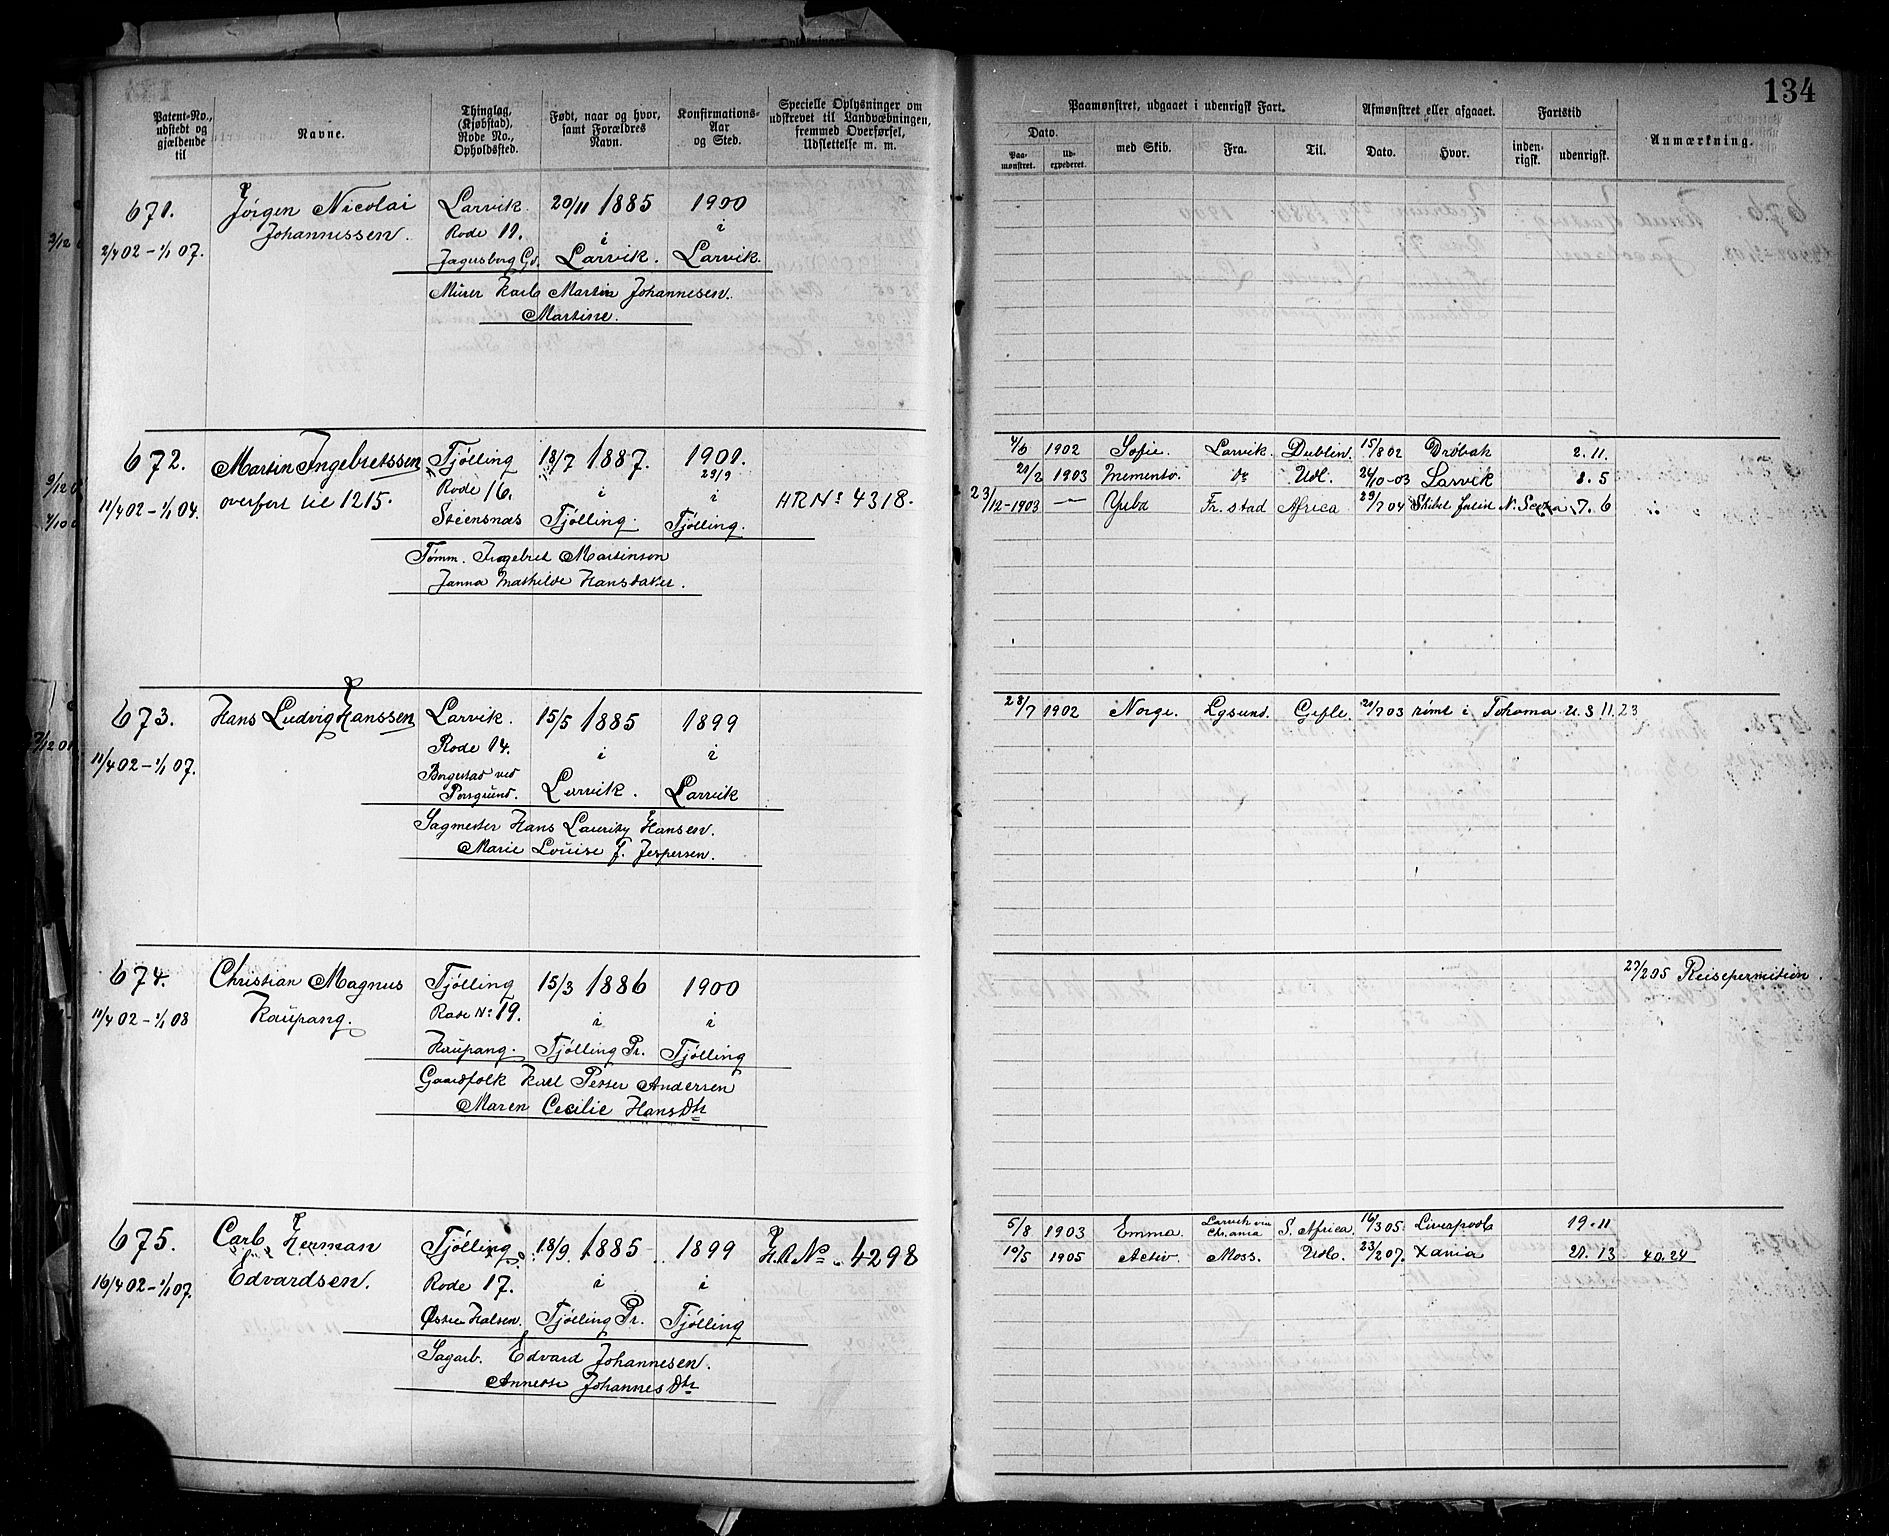 134
Patent-No., udstedt og gjældende til
Navne.
Thinglag, (Kjøbstad), Rode No., Opholdssted.
Født, naar og hvor, samt Forældres Navn.
Konfirmations-Aar og Sted.
Specielle Oplysninger om udskrevet til Landværbningen, fremmed Overførsel, Udslettelse m. m.
Paamønstret, udgaaet i udenrigsk Fart.
Afmønstret eller afgaaet.
Fartstid
Anmærkning.
Dato.
Paa-mønstret.
Ud-expederet.
med Skib.
Fra.
Til.
Dato.
Hvor.
inden-rigsk.
udenrigsk.
671. Jörgen Nicolai Larvik 20/11 1885 1900
Johannessen. Rode 11. i i
2/4 02 - 1/1 07. Jagersborg Gd. Larvik. Larvik.
Murer Karl Martin Johannesen.
Martine.
672. Martin Ingebretssen Tjölling 18/7 1887. 1901. 29/9
overfört til 1215. Rode 16. i i HR No 4318.
11/4 02 - 1/1 04. Steensnæs Tjölling. Tjölling.
Tömm. Ingebret Martinson
Janna Mathilde Hansdatter.
4/6 1902 Sofie. Larvik. Dublin. 15/8 02 Dröbak 2. 11.
21/2 1903 Memento. do Udl. 24/10-03 Larvik 8. 5
23/12-1903 — Fr.stad Africa 29/7 04 N. Scotia 7. 6
673. Hans Ludvig Hanssen Larvik. 15/5 1885 1899
Rode 14. i i
11/4 02 - 1/1 07. Borgestad ved Porsgrund. Larvik. Larvik
Sagmester Hans Lauritz Hansen.
Marie Louise F. Jespersen.
28/7 1902 Norge. Lgsund. Gefle. 21/7 03 römt i Tohoma U.S 11. 23
674. Christian Magnus Tjölling 15/3 1886 1900
Kaupang. Rode No 19. i i
11/4 02 - 1/1 08 Kaupang. Tjölling Pr. Tjölling
Gaardfolk Karl Petter Andersen
Maren Cecilie Hansdtr
27/2 05 Reisepermition.
675. Carl Herman Tjölling 18/9. 1885 1899 H.R No 4298
Edvardsen. Rode 17. i i
16/4 02 - 1/1 07. Østre Halsen. Tjölling Pr. Tjölling
Sagarb. Edvard Johannesen.
Annette Johannesdtr
5/8 1903 Emma Larvik via Chr.ania S. Africa. 16/3 05. Liverpool 19. 11
10/5 1905 Activ Moss. Udl. 23/2 07. Xania 21. 13 40. 24